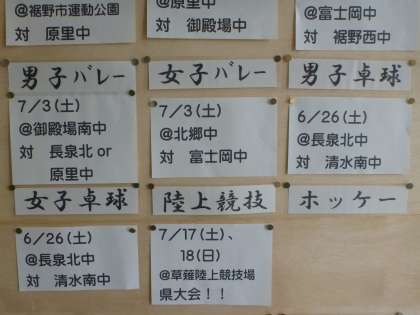 @裾野市運動公園
対 原里中
@原里中
対 御殿場中
@富士岡中
対 裾野西中
男子バレー
7/3(土)
@御殿場南中
対 長泉北or
原里中
女子バレー
7/3(土)
@北郷中
対 富士岡中
男子卓球
6/26(土)
@長泉中
対 清水南中
女子卓球
6/26(土)
@長泉中
対 清水南中
陸上競技
7/17(土)、
18(日)
@草薙陸上競技場
県大会！！
ホッケー